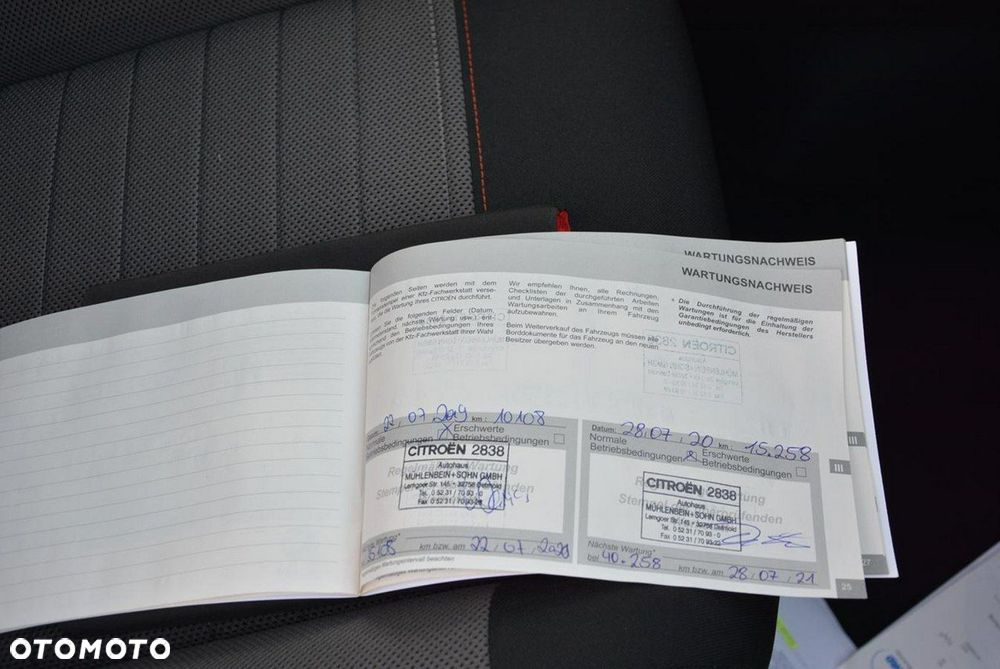 WARTUNGSNACHWEIS
WARTUNGSNACHWEIS
folgenden Seiten werden mit dem
einer Kfz-Fachwerkstatt
die Wartung Ihres CITROËN durchführt.
Sie die folgenden Felder (Datum,
nächste Wartung, usw.)
den Betriebsbedingungen Ihres
von der Kfz-Fachwerkstatt Ihrer Wahl
Wir empfehlen Ihnen, alle Rechnungen,
Checklisten der durchgeführten Arbeiten
und Unterlagen in Zusammenhang mit den
Wartungsarbeiten an Ihrem Fahrzeug
aufzubewahren.
Beim Weiterverkauf des Fahrzeugs müssen alle
Borddokumente für das Fahrzeug an den neuen
Besitzer übergeben werden.
* Die Durchführung der regelmäßigen
Wartungen ist für die Einhaltung der
Garantiebedingungen des Herstellers
unbedingt erforderlich.
22.07.2019 km: 10108
Erschwerte
Betriebsbedingungen
Betriebsbedingungen
Regelmäßige Wartung
CITROËN 2838
Autohaus
MÜHLENBEIN+SOHN GMBH
Lemgoer Str. 145 - 32758 Detmold
Tel. 0 52 31 / 70 93 - 0
Fax 0 52 31 / 70 93-22
km bzw. am 22.07.2020
Datum: 28.07.20 km: 15.258
Normale
Betriebsbedingungen
Erschwerte
Betriebsbedingungen
CITROËN 2838
Autohaus
MÜHLENBEIN+SOHN GMBH
Lemgoer Str. 145 - 32758 Detmold
Tel. 0 52 31 / 70 93 - 0
Fax 0 52 31 / 70 93-22
Nächste Wartung*
bei 40.258 km bzw. am 28.07.21
III
III
25
27
OTOMOTO